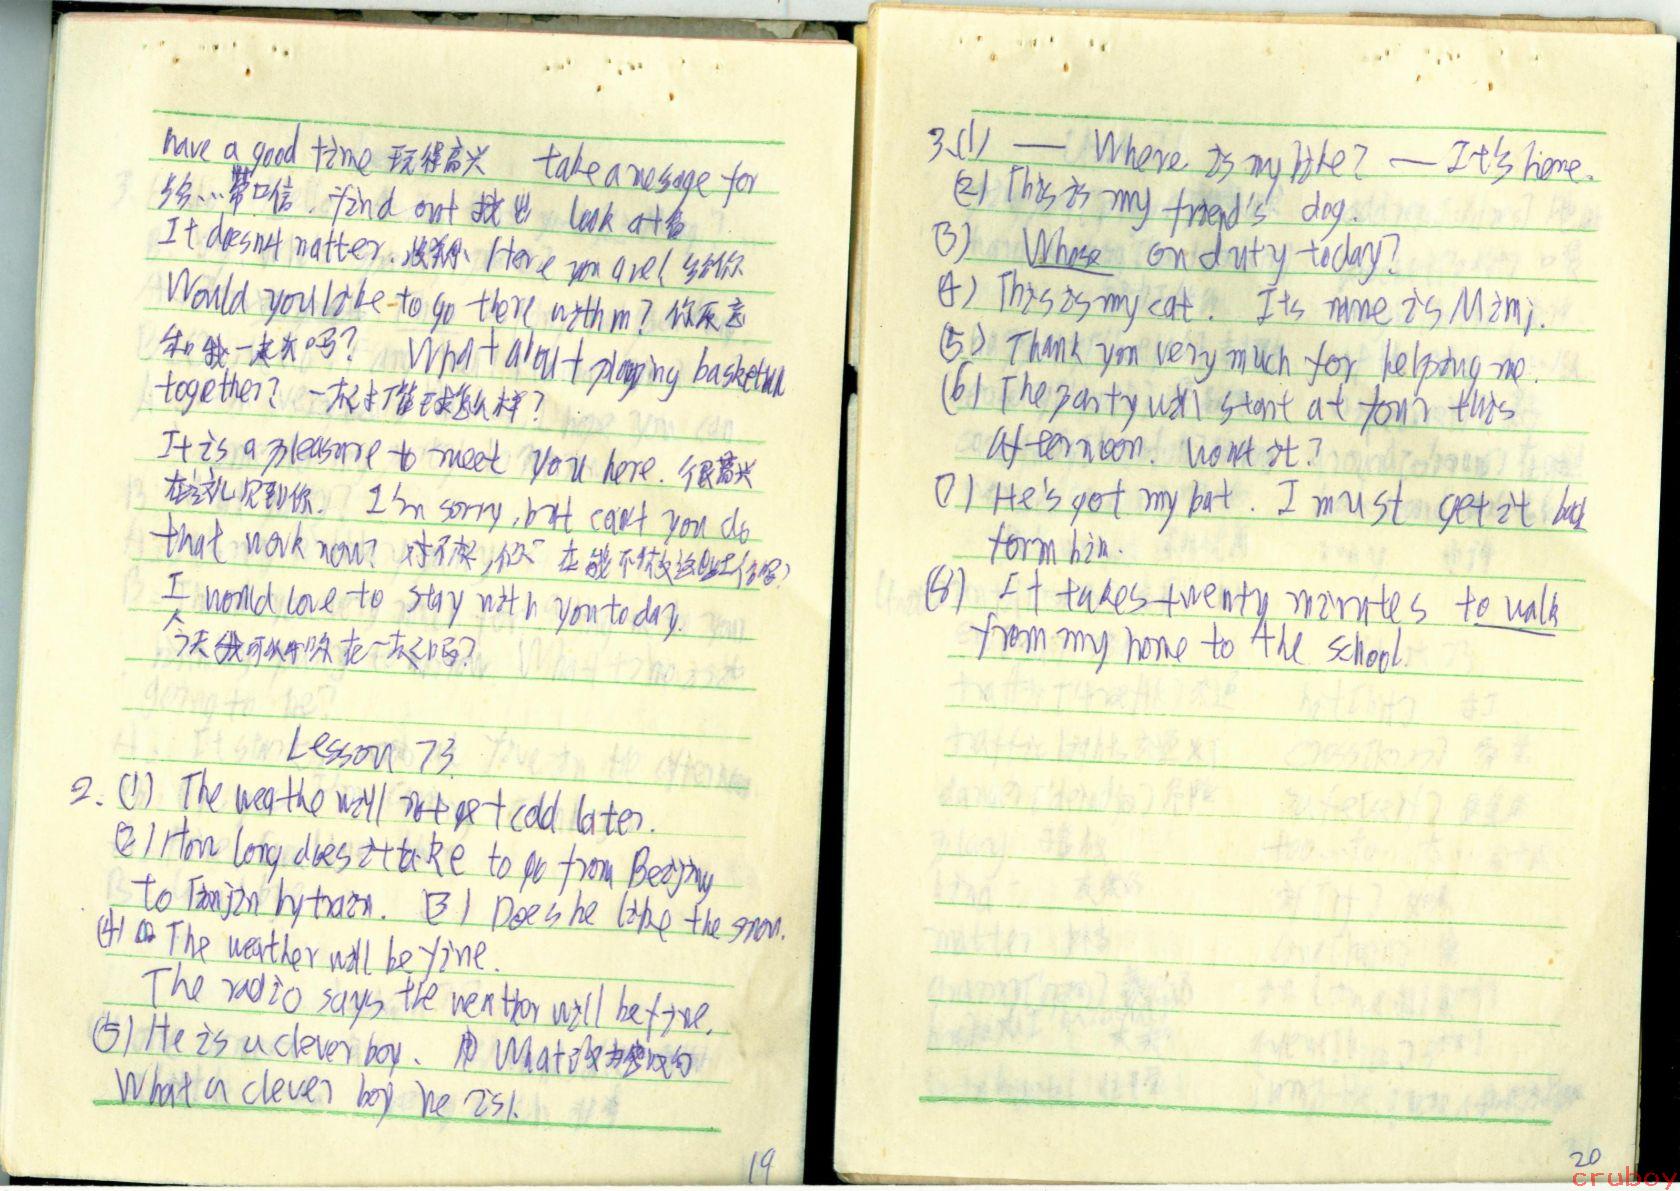 have a good time 玩得高兴 take a message for
给…带口信. find out 找出 look at 看
It doesn't matter. 没关系. Here you are! 给你
Would you like to go there with m? 你愿意
和我一起去吗? What about playing basketball
together? 一起打篮球怎么样?
It is a pleasure to meet you here. 很高兴
在这儿见到你. I'm sorry, but can't you do
that work now? 对不起,你 在能不做这些工作吗?
I would love to stay with you today.
今天我可以和你在一起吗?
Lesson 73.
2. (1) The weathe will not get cold later.
(2) How long does it take to go from Beijing
to Tianjin by train. (3) Does he like the snow.
(4) The weather will be fine.
The radio says the weather will be fine.
(5) He is a clever boy. 用 What 改为感叹句
What a clever boy he is!
19
3.(1) — Where is my bike? — It's here.
(2) This is my friend's dog.
(3) Whose on duty today?
(4) This is my cat. Its name is Mimi.
(5) Thank you very much for helping me.
(6) The party will start at four this
afternoon. won't it?
(7) He's got my bat. I must get it back
form him.
(8) It takes twenty minutes to walk
from my home to the school
20
cruboy